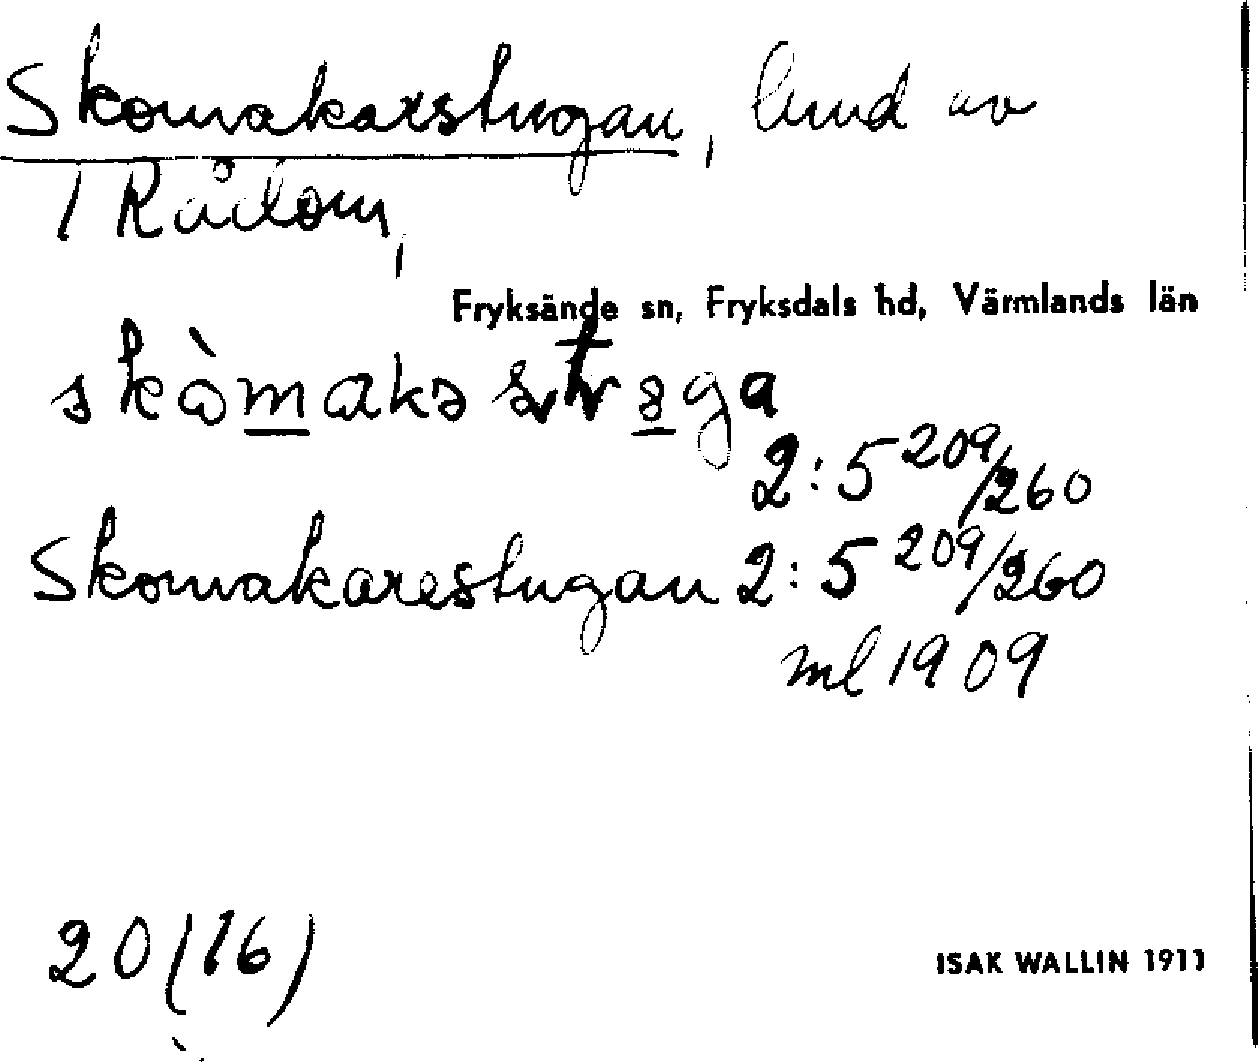 Skomakarstugan, lund av
1 Rådom,
Fryksände sn, Fryksdals hd, Värmlands län
2:5 209/260
Skomakarestugan 2:5 209/260
ml 1909
20 (16)
ISAK WALLIN 1911